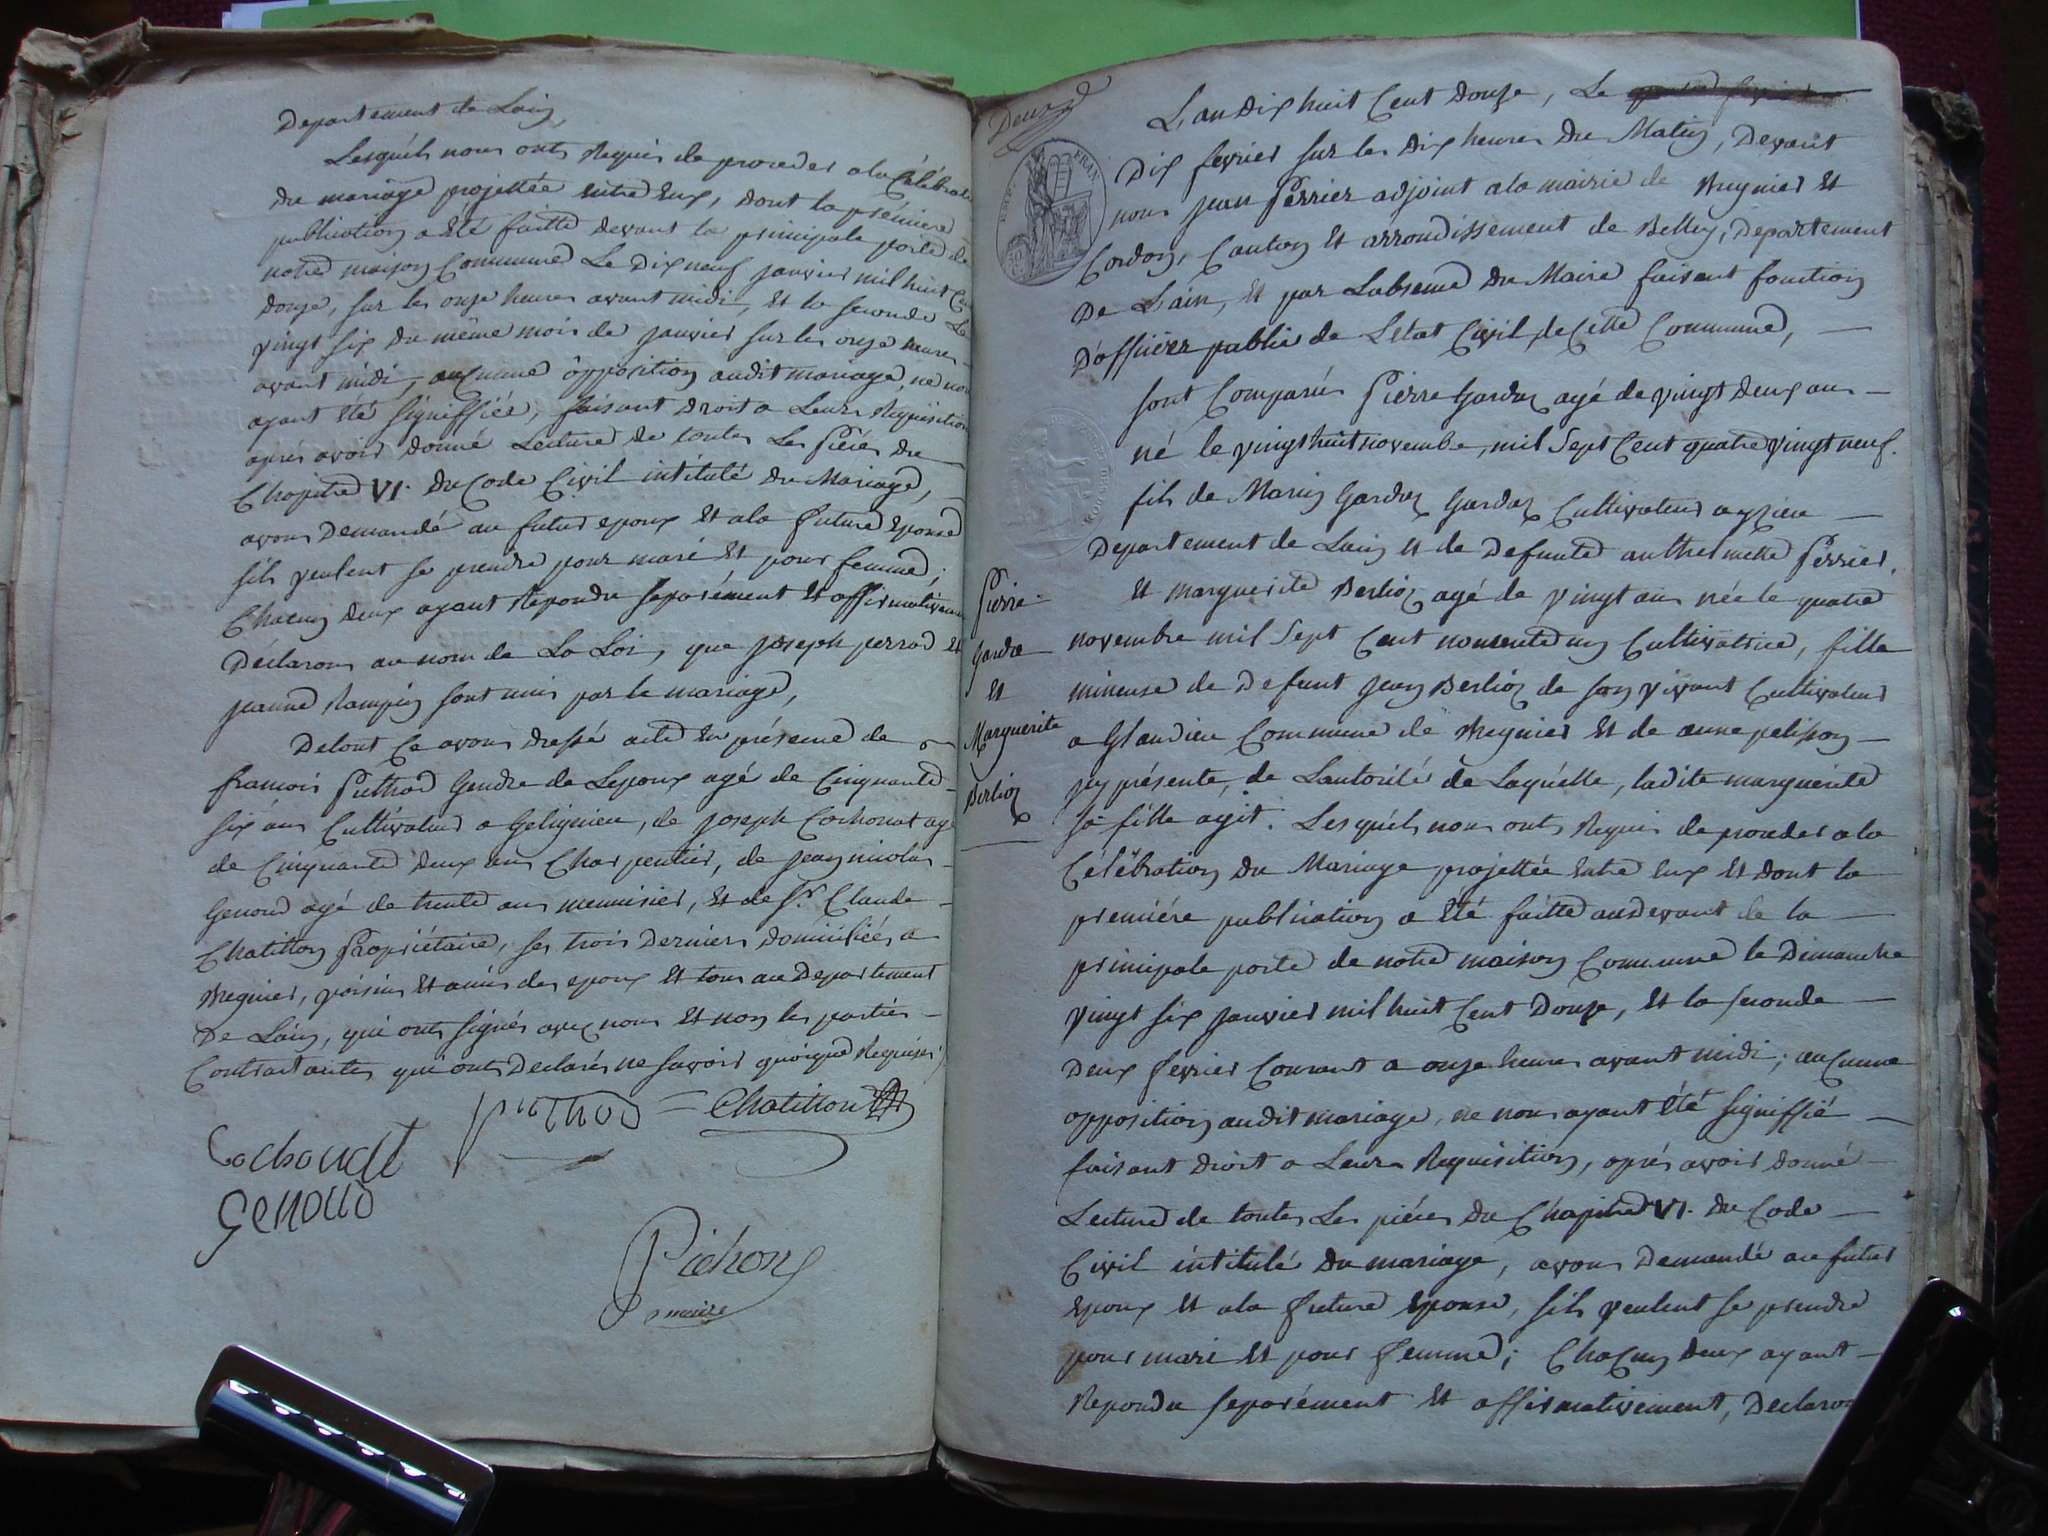 Departement de Lain,
Lesquels nous onts Requis de proceder a la Célébration
du mariage projettée entre Eux, dont la prémiere
publication a Eté faitte devant la principale porte de
notre maison Commune Le Dix neuf janvier mil huit Cent
douze, sur les onze heures avant midi, et la seconde Le
vingt six du même mois de janvier sur les onze heures
avant midi, aucunne ôpposition audit mariage, ne nous
ayant Eté signiffiée, faisant Droit a Leurs Requisition
aprés avoir donné Lecture de toutes Les Piéces du
Chapitre VI. du Code Civil intitulé du Mariage,
avons Demandé au futur epoux Et a la future Epouse
s'ils veulent se prendre pour mari Et pour femme;
Chacun deux ayant Repondu separément Et affirmativement
Déclarons au nom de La Loi, que Joseph perrod Et
jeanne Rampin sont unis par le mariage,
Detout Ce avons dressé acte En présence de
francois Puthod Gendre de Lepoux agé de Cinquante
six ans Cultivateur a Gelignieu, de joseph Cochonat agé
de Cinquante deux ans Charpentier, de jean nicolas
Genoud agé de trente ans menuisier, Et de Sr. Claude
Chatillon Propriétaire, les trois Derniers domiciliées a
Bregnier, voisins Et amis des epoux Et tous au Departement
De Lain, qui onts signés avec nous Et non les parties
Contractantes qui onts Declarés ne savoir quoique Requises,
puthod Chatillon
Cochonat
Genoud
Pichon
maire
Deuxe
L'an Dix huit Cent douze, Le
Dix fevrier sur les dix heures du Matin, Devant
nous jean Perrier adjoint a la mairie de Bregnier Et
Cordon, Canton Et arrondissement de Belley, Departement
De L'ain, Et par Labsence du Maire faisant fonction
D'officier public de Letat Civil de Cette Commune,
sont Comparus Pierre Gardaz agé de vingt Deux ans
né le vingt huit novembre, mil Sept Cent quatre vingt neuf.
fils de Marin Gardaz Cultivateur a yzieu
Departement de Lain et de Defunte anthelmette Perrier,
Et marguerite Berlioz agé de vingt ans née le quatre
novembre mil Sept Cent nonente un Cultivatrice, fille
mineuse de Defunt jean Berlioz de son vivant Cultivateur
a Glandieu Commune de Bregnier Et de anne pelisson
jcy présente, de Lautorité de Laquelle, ladite marguerite
sa fille agit. Lesquels nous ont Requis de proceder a la
Célébration du Mariage projettée entre Eux Et dont la
premiére publication a Eté faitte audevant de la
principale porte de notre maison Commune le Dimanche
vingt six janvier mil huit Cent Douze, Et la seconde
Deux fevrier Courant a onze heures avant midi; aucunne
opposition audit mariage, ne nous ayant Eté signiffié
faisant Droit a Leurs Requisition, aprés avoir donné
Lecture de toutes Les piéces du Chapitre VI. du Code
Civil intitulé du mariage, avons Demandé au futur
Epoux Et a la future Epouse, s'ils veulent se prendre
pour mari Et pour femme; Chacun deux ayant
Repondu separément Et affirmativement, Declarons
Pierre
Gardaz
Et
Marguerite
Berlioz